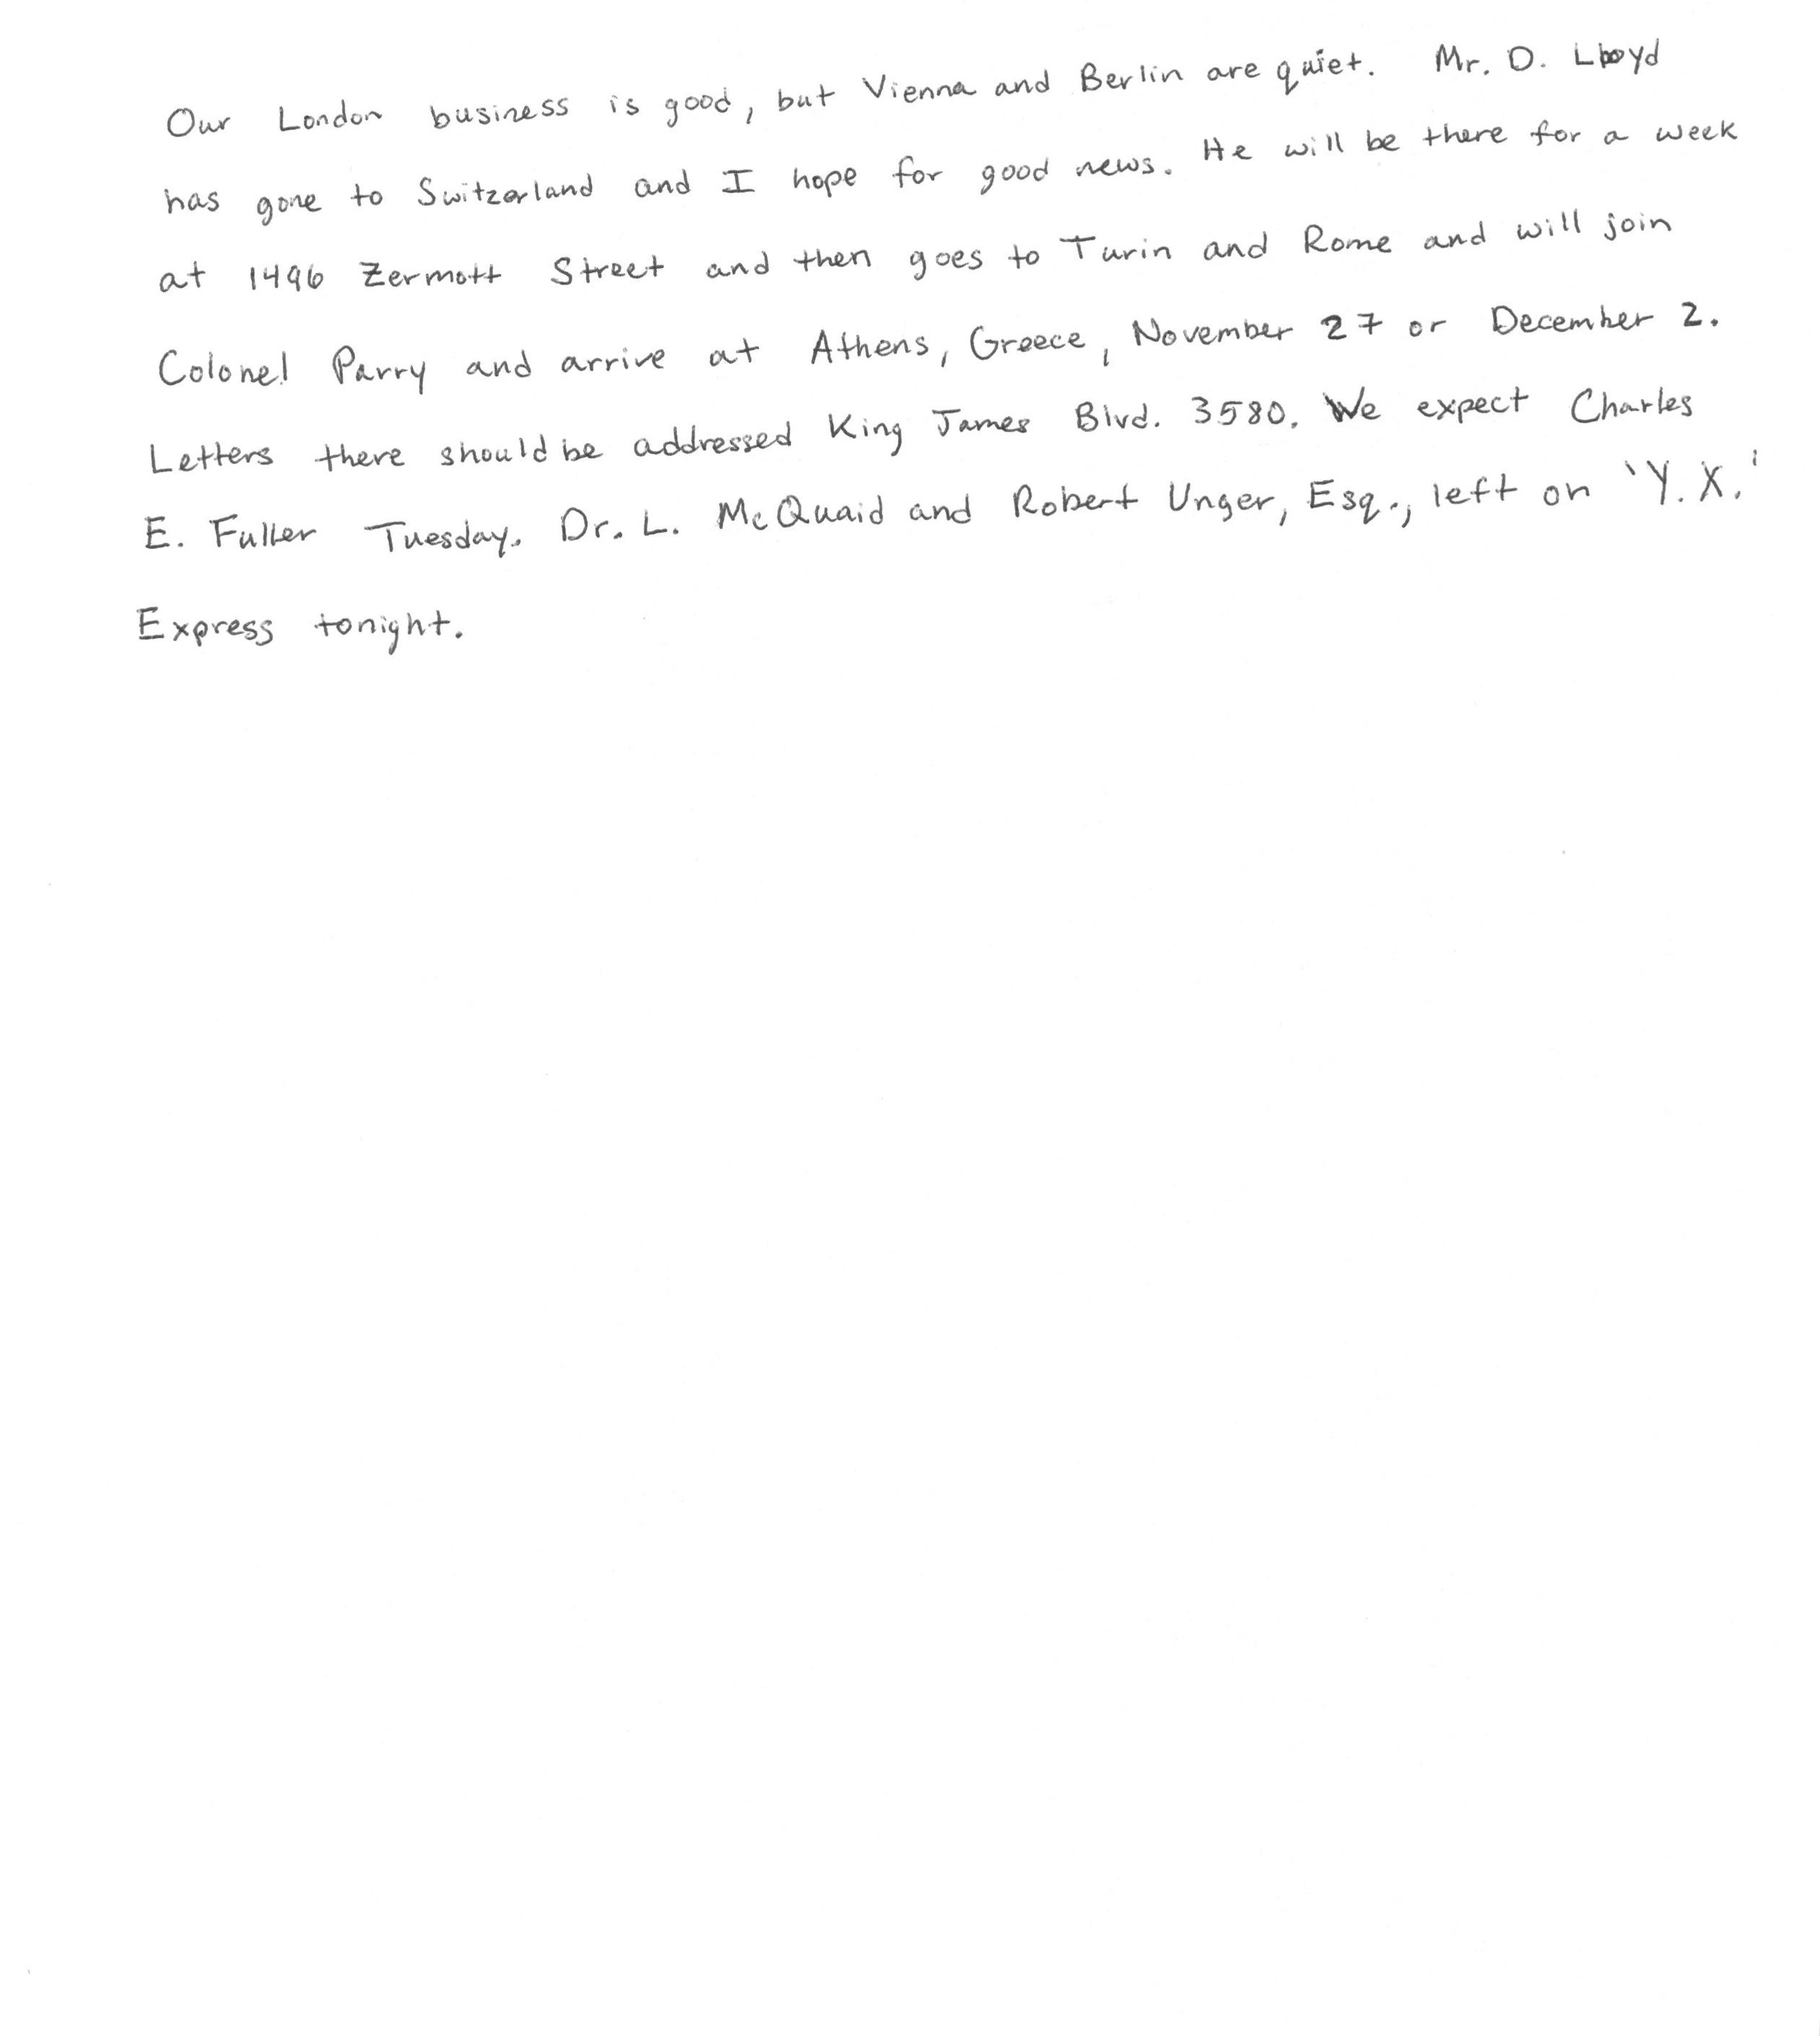 Our London business is good, but Vienna and Berlin are quiet. Mr. D. Lloyd
has gone to Switzerland and I hope for good news. He will be there for a week
at 1496 Zermott Street and then goes to Turin and Rome and will join
Colonel Parry and arrive at Athens, Greece, November 27 or December 2.
Letters there should be addressed King James Blvd. 3580. We expect Charles
E. Fuller Tuesday. Dr. L. McQuaid and Robert Unger, Esq., left on 'Y.X.'
Express tonight.